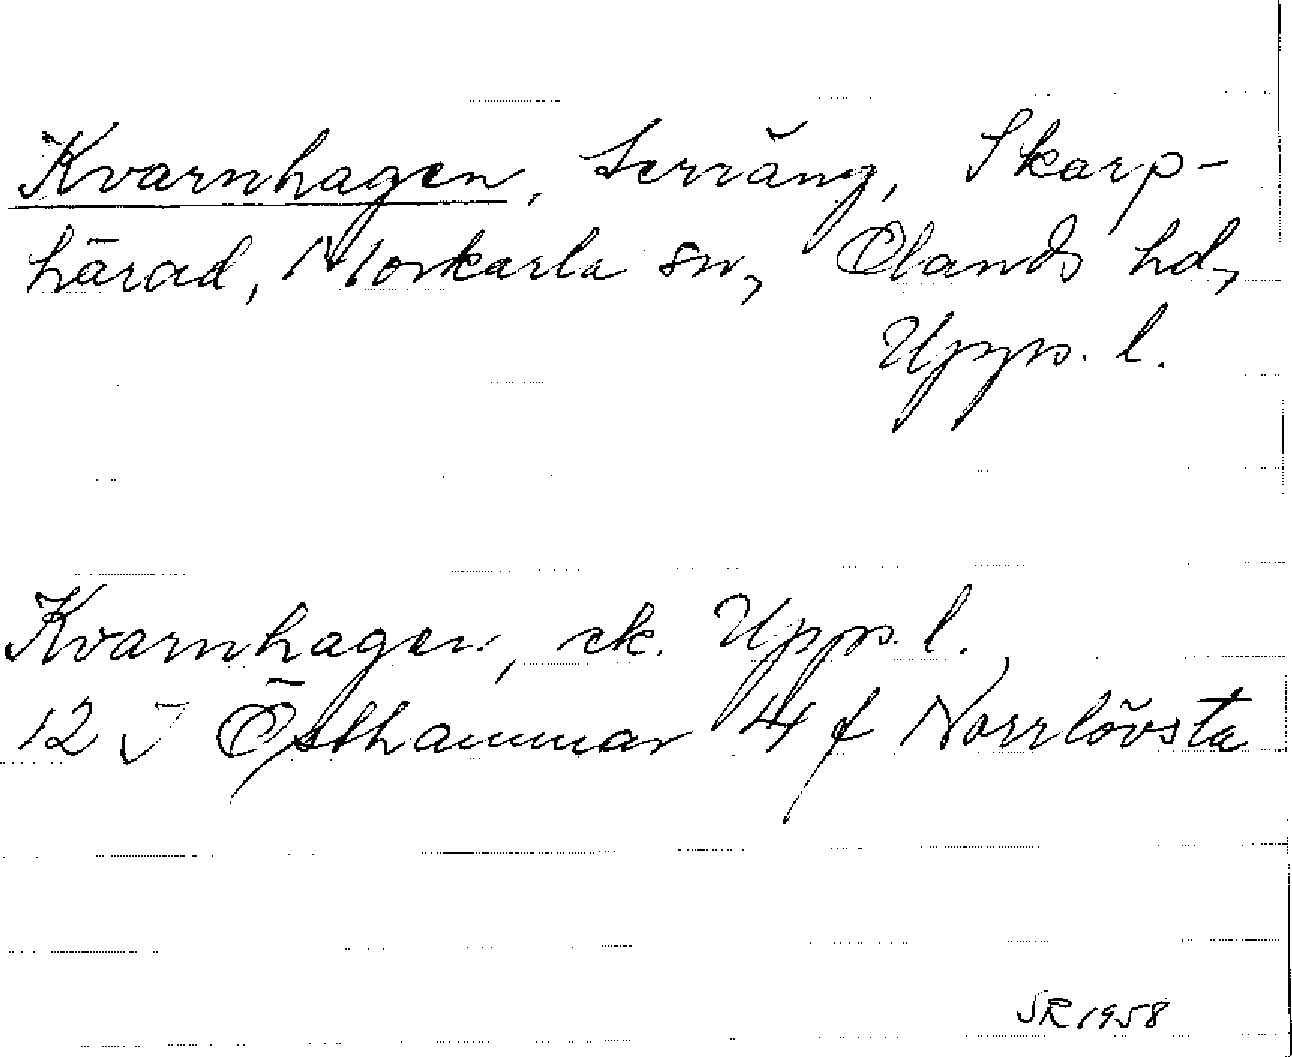 Kvarnhagen, terräng, Skarp-
härad, Morkarla sn, Olands hd,
Upps. l.
Kvarnhagen, ek. Upps. l.
12 I Östhammar 4 f Norrlövsta
SR 1958